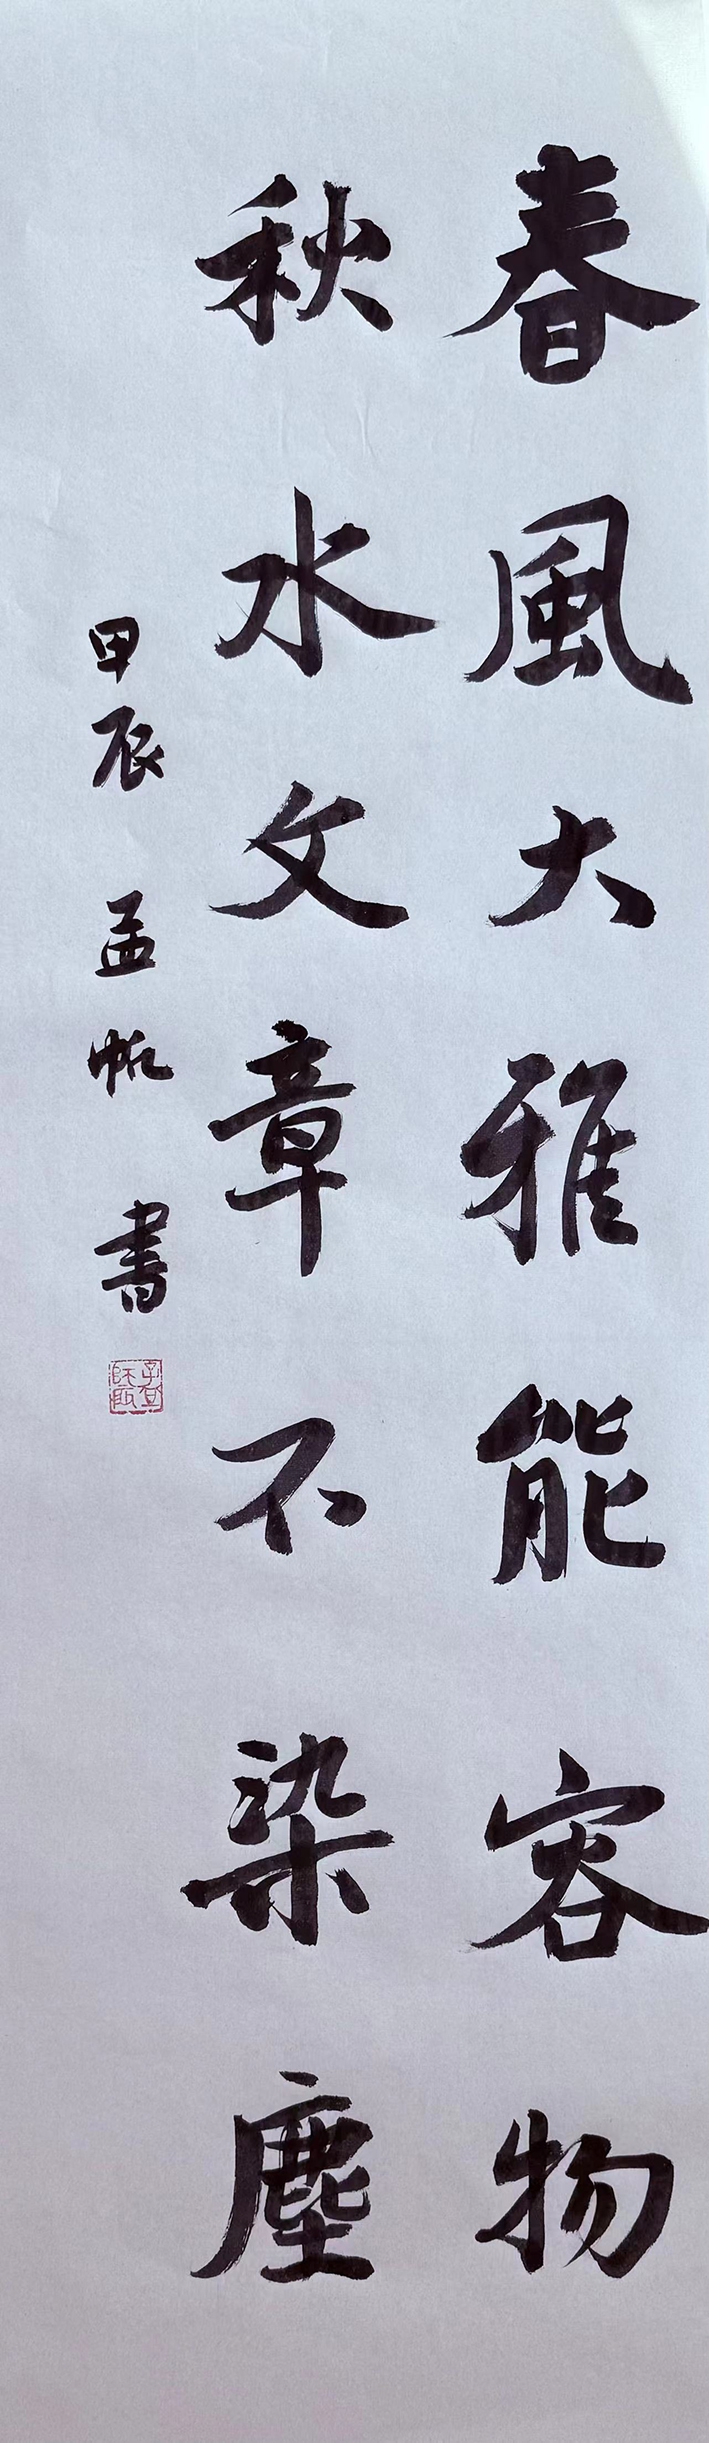 春風大雅能容物
秋水文章不染塵
甲辰 孟帆 書